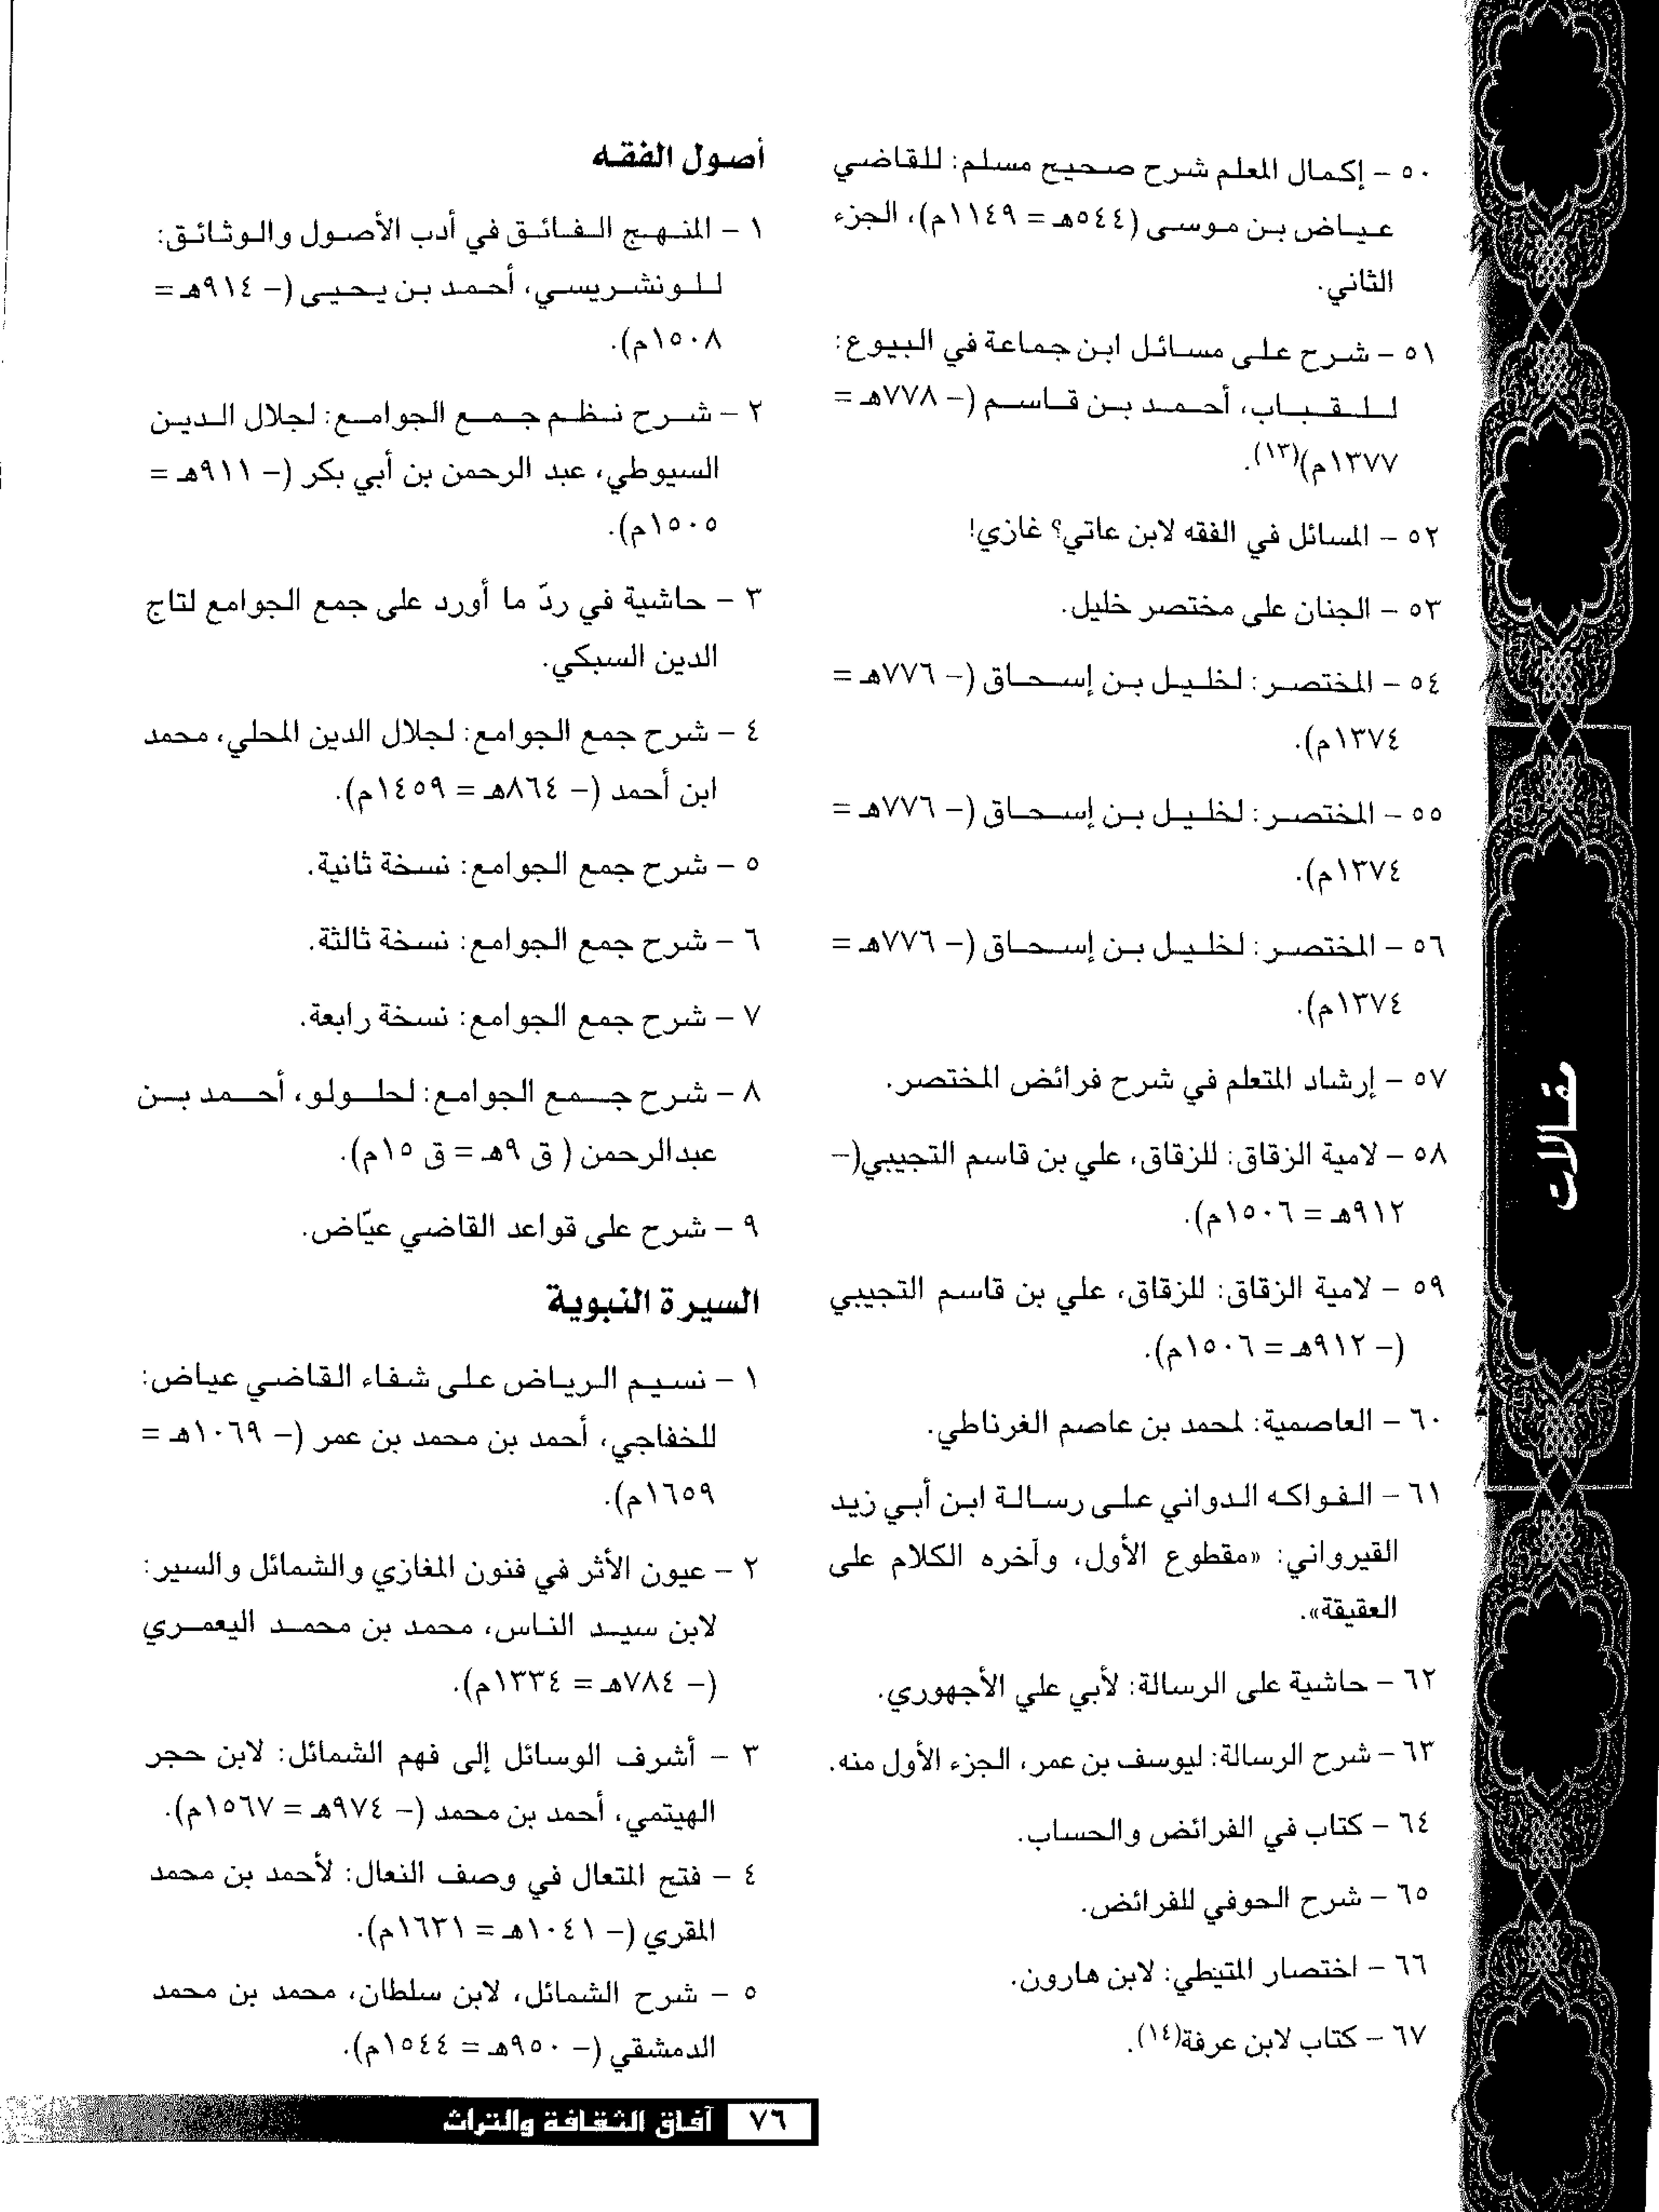 ٥٠ – إكمال المعلم شرح صحيح مسلم: للقاضي
عياض بن موسى (٥٤٤هـ = ١١٤٩م)، الجزء
الثاني.
٥١ – شرح على مسائل ابن جماعة في البيوع:
للقباب، أحمد بن قاسم (– ٧٧٨هـ =
١٣٧٧م)(١٣).
٥٢ – المسائل في الفقه لابن عاتي؟ غازي!
٥٣ – الجنان على مختصر خليل.
٥٤ – المختصر: لخليل بن إسحاق (– ٧٧٦هـ =
١٣٧٤م).
٥٥ – المختصر: لخليل بن إسحاق (– ٧٧٦هـ =
١٣٧٤م).
٥٦ – المختصر: لخليل بن إسحاق (– ٧٧٦هـ =
١٣٧٤م).
٥٧ – إرشاد المتعلم في شرح فرائض المختصر.
٥٨ – لامية الزقاق: للزقاق، علي بن قاسم التجيبي(–
٩١٢هـ = ١٥٠٦م).
٥٩ – لامية الزقاق: للزقاق، علي بن قاسم التجيبي
(– ٩١٢هـ = ١٥٠٦م).
٦٠ – العاصمية: لمحمد بن عاصم الغرناطي.
٦١ – الفواكه الدواني على رسالة ابن أبي زيد
القيرواني: «مقطوع الأول، وآخره الكلام على
العقيقة».
٦٢ – حاشية على الرسالة: لأبي علي الأجهوري.
٦٣ – شرح الرسالة: ليوسف بن عمر، الجزء الأول منه.
٦٤ – كتاب في الفرائض والحساب.
٦٥ – شرح الحوفي للفرائض.
٦٦ – اختصار المتيطي: لابن هارون.
٦٧ – كتاب لابن عرفة(١٤).
أصول الفقه
١ – المنهج الفائق في أدب الأصول والوثائق:
للونشريسي، أحمد بن يحيى (– ٩١٤هـ =
١٥٠٨م).
٢ – شرح نظم جمع الجوامع: لجلال الدين
السيوطي، عبد الرحمن بن أبي بكر (– ٩١١هـ =
١٥٠٥م).
٣ – حاشية في ردّ ما أورد على جمع الجوامع لتاج
الدين السبكي.
٤ – شرح جمع الجوامع: لجلال الدين المحلي، محمد
ابن أحمد (– ٨٦٤هـ = ١٤٥٩م).
٥ – شرح جمع الجوامع: نسخة ثانية.
٦ – شرح جمع الجوامع: نسخة ثالثة.
٧ – شرح جمع الجوامع: نسخة رابعة.
٨ – شرح جمع الجوامع: لحلولو، أحمد بن
عبدالرحمن ( ق ٩هـ = ق ١٥م).
٩ – شرح على قواعد القاضي عيّاض.
السيرة النبوية
١ – نسيم الرياض على شفاء القاضي عياض:
للخفاجي، أحمد بن محمد بن عمر (– ١٠٦٩هـ =
١٦٥٩م).
٢ – عيون الأثر في فنون المغازي والشمائل والسير:
لابن سيد الناس، محمد بن محمد اليعمري
(– ٧٨٤هـ = ١٣٣٤م).
٣ – أشرف الوسائل إلى فهم الشمائل: لابن حجر
الهيتمي، أحمد بن محمد (– ٩٧٤هـ = ١٥٦٧م).
٤ – فتح المتعال في وصف النعال: لأحمد بن محمد
المقري (– ١٠٤١هـ = ١٦٣١م).
٥ – شرح الشمائل، لابن سلطان، محمد بن محمد
الدمشقي (– ٩٥٠هـ = ١٥٤٤م).
مقالات
٧٦ آفاق الثقافة والتراث